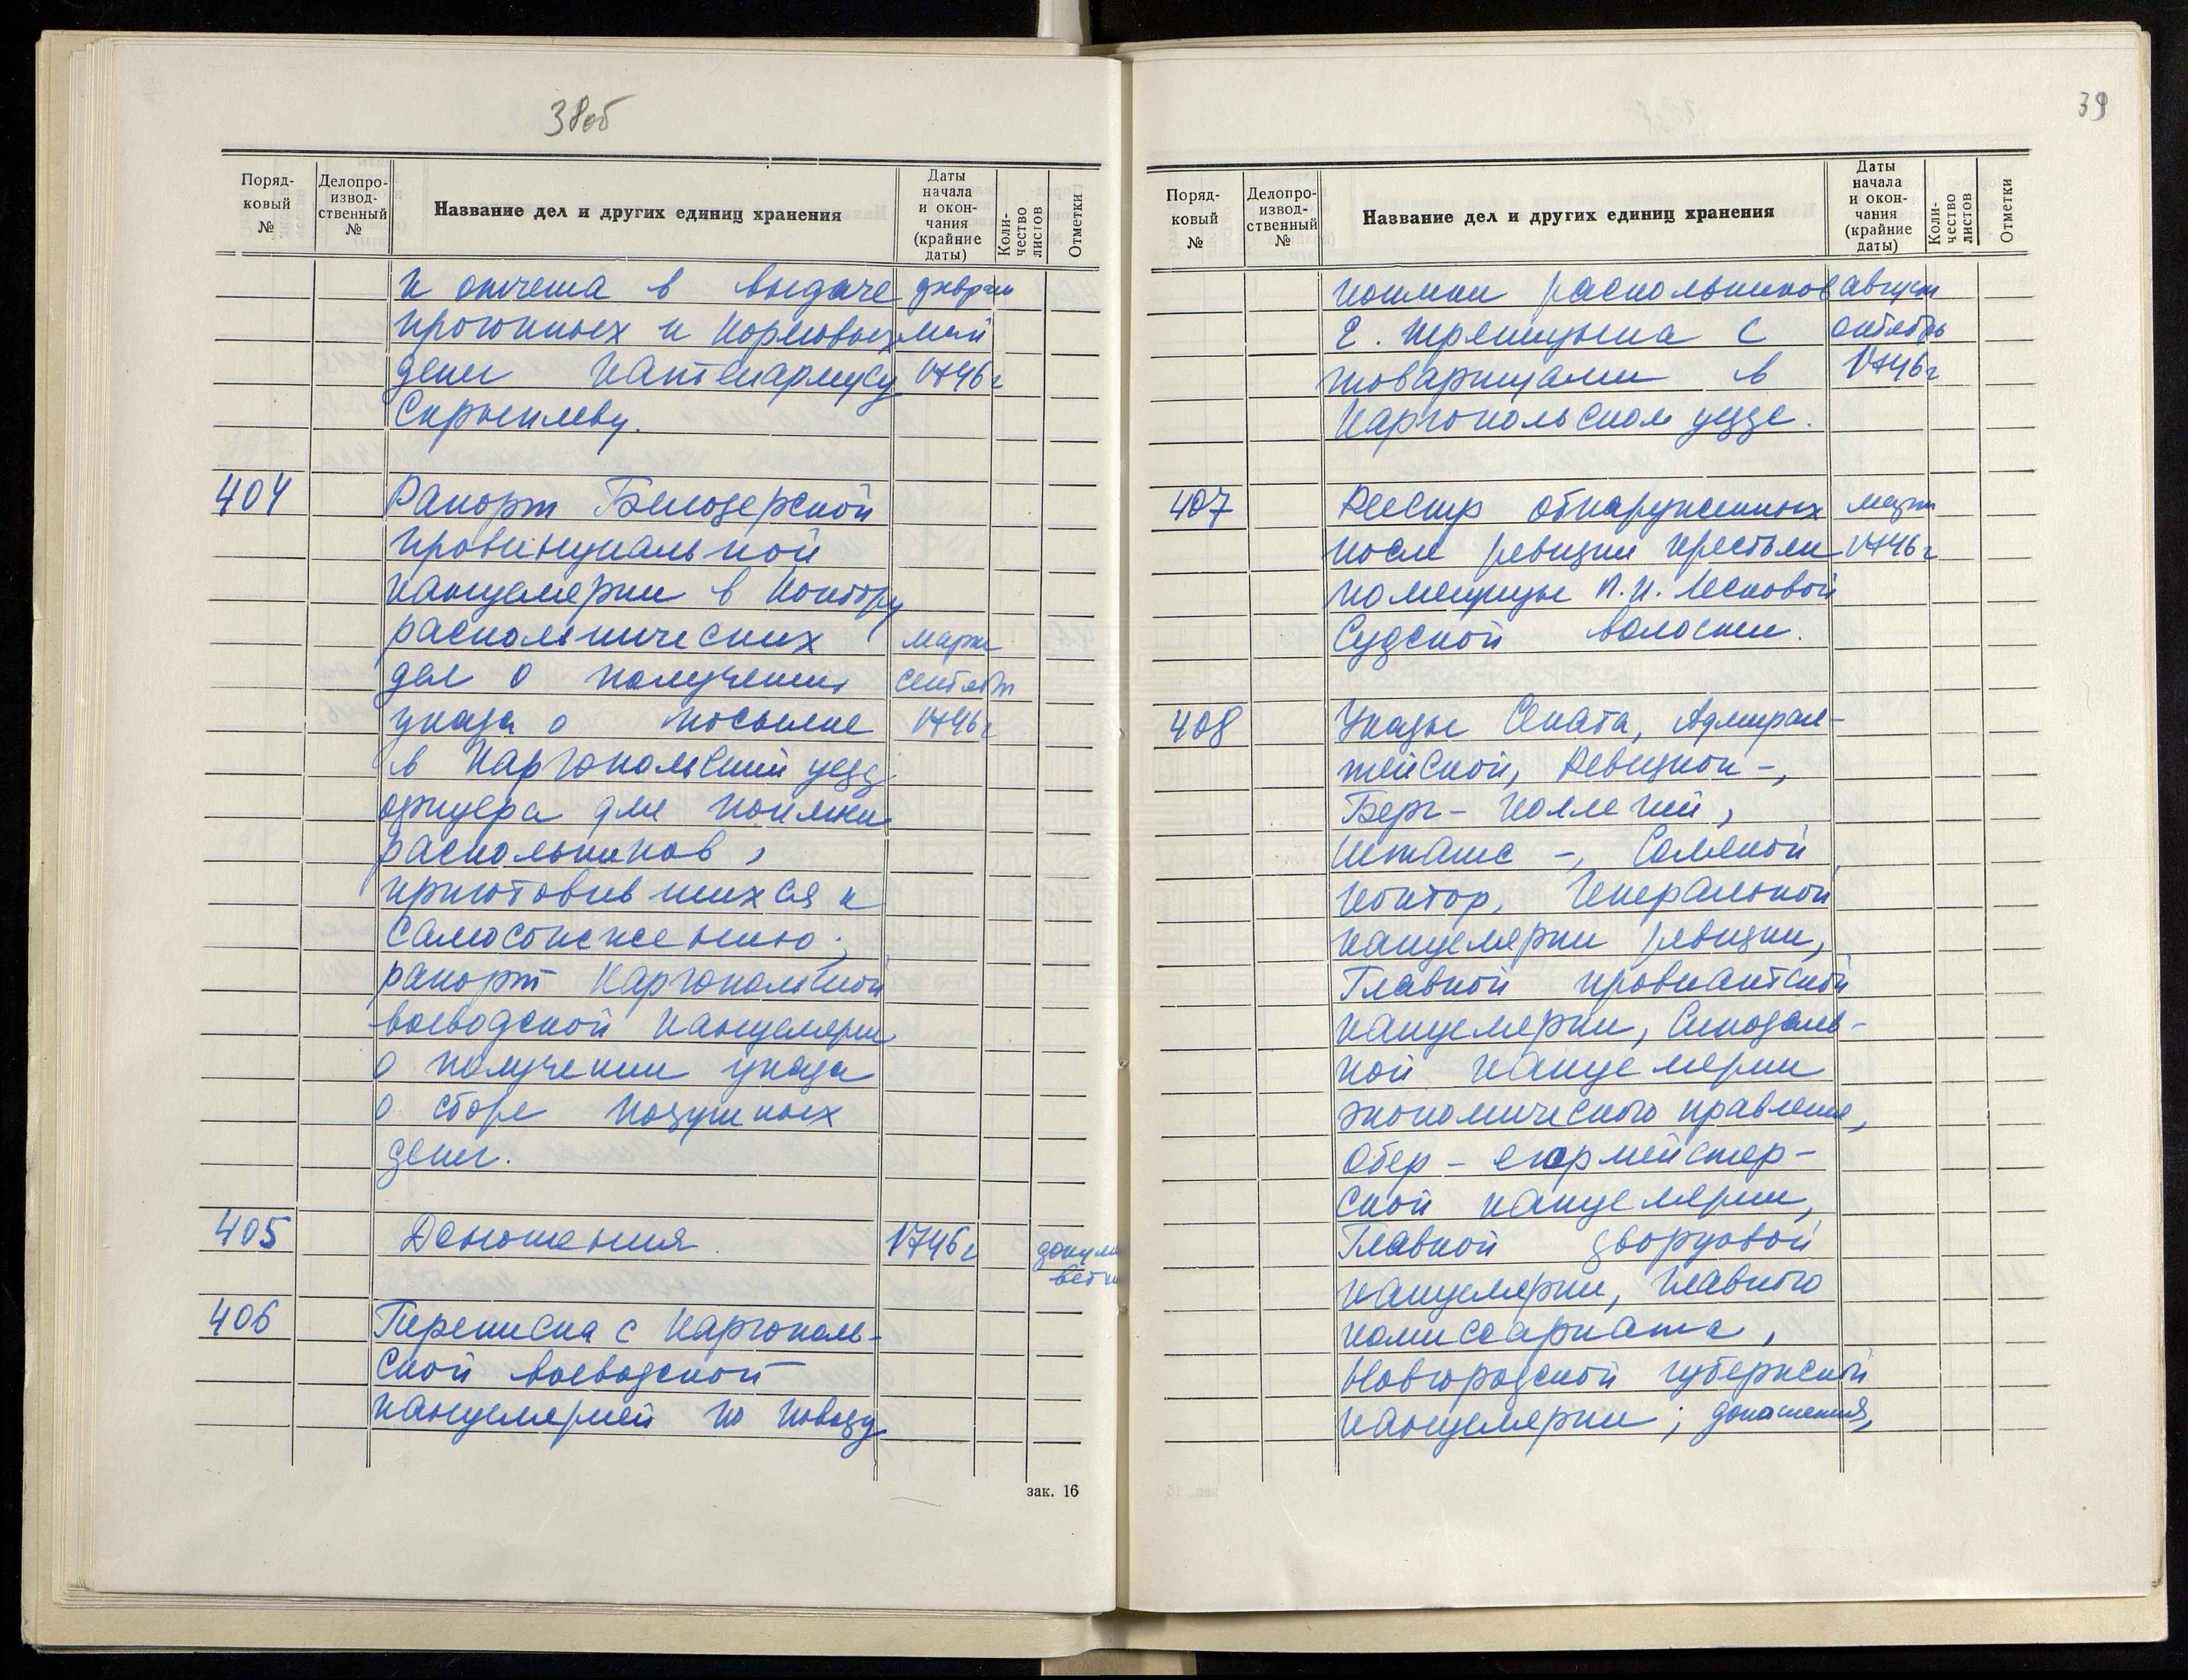 38об
Поряд-
ковый
№
Делопро-
извод-
ственный
№
Название дел и других единиц хранения
Даты
начала
и окон-
чания
(крайние
даты)
Коли-
чество
листов
Отметки
и отчета в выдаче
прогонных и кормовых май
денег каптенармусу 1746 г
Скрыплеву.
404 Рапорт Белозерской
провинциальной
канцелярии в Контору
раскольнических март
дел о получении сентябрь
указа о посылке 1746 г
в Каргопольский уезд
офицера для поимки
раскольников,
приготовившихся к
самосожжению;
рапорт Каргопольской
воеводской канцелярии
о получении указа
о сборе подушных
денег.
405 Доношения. 1746 г
406 Переписка с Каргополь-
ской воеводской
канцелярией по поводу
зак. 16
39
Поряд-
ковый
№
Делопро-
извод-
ственный
№
Название дел и других единиц хранения
Даты
начала
и окон-
чания
(крайние
даты)
Коли-
чество
листов
Отметки
поимки раскольников август
Е. с октябрь
товарищами в 1746 г
Каргопольском уезде.
407 Реестр обнаруженных март
после ревизии крестьян 1746 г
помещицы П. И.
Судской волости.
408 Указы Сената, Адмирал-
тейской, Ревизион-,
Берг-коллегий,
Штатс-, Соляной
контор, Генеральной
канцелярии ревизии,
Главной провиантской
канцелярии, Синодаль-
ной канцелярии
экономического правления,
Обер-егермейстер-
ской канцелярии,
Главной дворцовой
канцелярии, Главного
комиссариата,
Новгородской губернской
канцелярии; доношения,